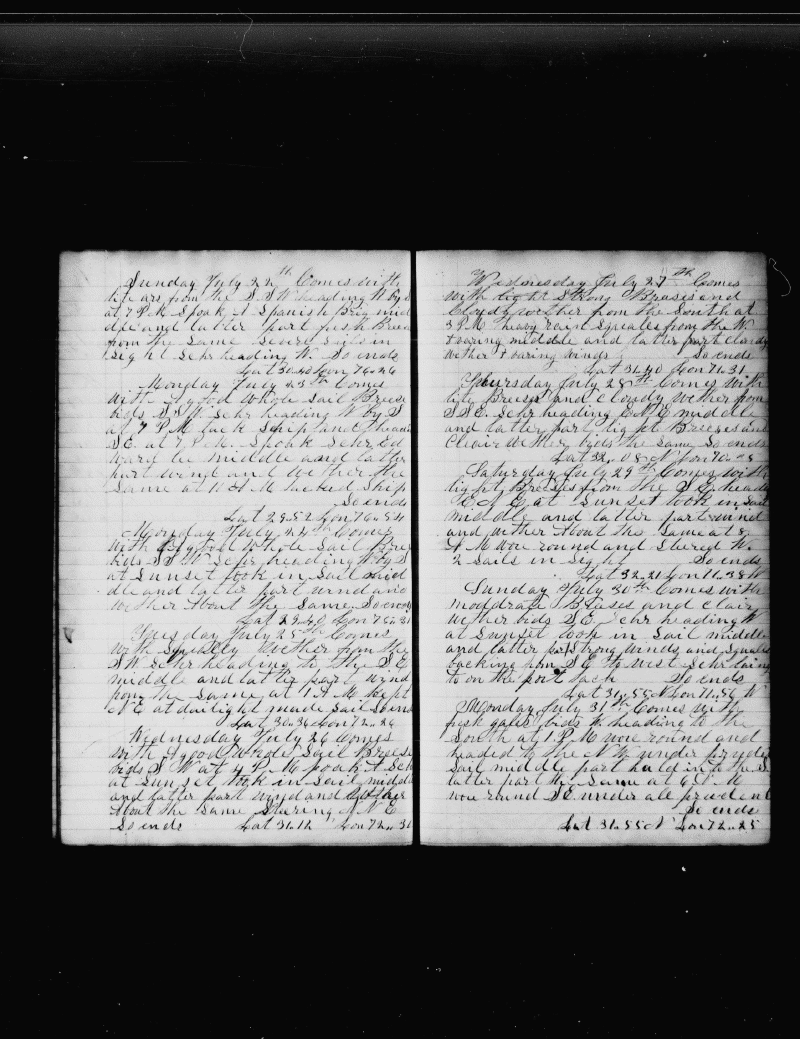 Sunday July 22th Comes with
lite airs from the SSW heading W by S
at 7 PM Spoak A Spanish Brig mid
dle and latter part fresh Breese
from the Same Severe Sails in
Sight Schr heading W So ends
Lat 30.40 Lon 76.26
Monday July 23th Comes
with A good whole Sail Breese
bids SSW Schr heading W by S
at 7 PM tack Ship and heading
SE. at 7 P.M. Spoak Schr Ed
ward Le middle and latter
part wind and wether the
Same at 11 A.M tacked Ship
So ends
Lat 29.52 Lon 76.54
Monday July 24th Comes
with A good Whole Sail Breese
bids SSW Schr heading W by S
at Sunset took in Sail mid
dle and latter part wind and
wether About the Same So ends
Lat 29.40 Lon 75.31
Tuesday July 25th Comes
with Squally Wether from the
SW Schr heading to the SE
middle and latter part wind
from the Same at 1 A.M kept
NE at dailight made Sail So ends
Lat 30.36 Lon 72.26
Wednesday July 26 Comes
with A good Whole Sail Breese
bids SW at 4 P.M Spoak A Schr
at Sunset took in Sail middle
and latter part wind and wether
About the Same Stearing NNE
So ends Lat 31.12 Lon 72.31
Wednesday July 27th Comes
with light Strong Breses and
Cloudy wether from the South at
3 P.M heavy rain Squales from the W
+ oaring middle and latter part cloudy
wether + oaring winds So ends
Lat 31.40 Lon 71.31
Thursday July 28th Comes with
lite Breese and Cloudy wether from
SSE. Schr heading E middle
and latter part light Breeses and
Clair Wether bids the Same So ends
Lat 32.08 N Lon 70.
Saturday July 29th Comes with
light Breeses from the S.E. heading
E at Sunset took in Sail
middle and latter part wind
and wether About the Same at 8
A M wore round and Stered W.
2 Sails in Sight So ends
Lat 32.21 Lon 71.38 W
Sunday July 30th Comes with
moderate Breses and Clair
wether bids SE Schr heading W
at Sunset took in Sail middle
and latter part Strong winds and Squales
backing from SE to west Schr laing
to on the port tack So ends
Lat 31.55 N Lon 71.56 W
Monday July 31th Comes with
fresh gales bids heading to the
South at 1 P M wore round and
headed to the NW under
Sail middle part hald in to the S.
latter part the Same at 6 P M
wore round SE under all prudent
So ends
Lat 31.55 N Lon 72.25